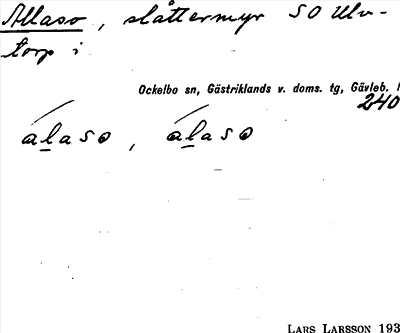 Allaso, slåttermyr SO Ulv-
torp i
Ockelbo sn, Gästriklands v. doms. tg, Gävleb. l
240
álaso, álaso
LARS LARSSON 193